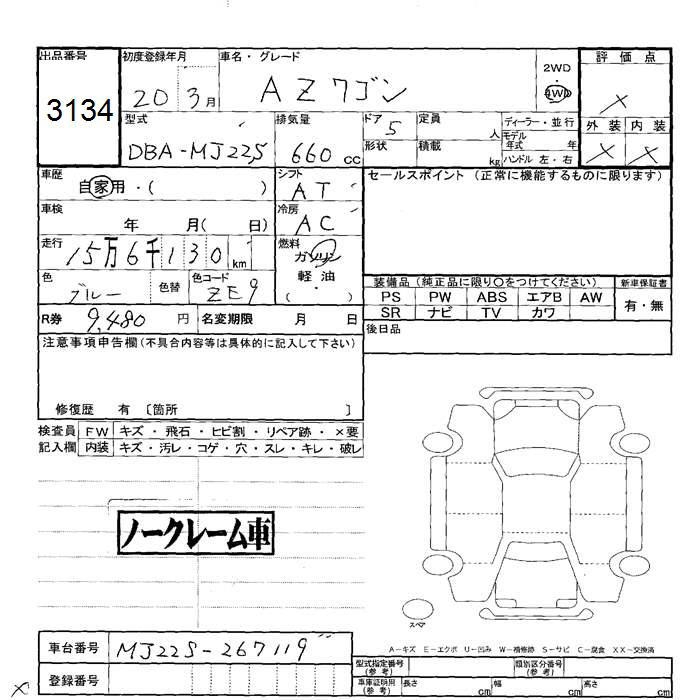 出品番号 初度登録年月 車名・グレード 2WD 4WD 評価点
3134 20 3月 AZワゴン ×
型式 排気量 ドア 5 定員 人 ディーラー・並行 外装 内装
DBA-MJ22S 660 cc 形状 積載 kg モデル年式 年 ハンドル 左・右 × ×
車歴 自家用・( ) シフト AT セールスポイント (正常に機能するものに限ります)
車検 年 月( 日) 冷房 AC
走行 15万6千130km 燃料 ガソリン
色 ブルー 色替 色コード ZE9 軽油 ( ・ )
装備品 (純正品に限り○をつけてください) 新車保証書
PS PW ABS エアB AW 有・無
SR ナビ TV カワ
R券 9,480 円 名変期限 月 日 後日品
注意事項申告欄(不具合内容等は具体的に記入して下さい)
修復歴 有 〔箇所 〕
検査員 FW キズ・飛石・ヒビ割・リペア跡・×要
記入欄 内装 キズ・汚レ・コゲ・穴・スレ・キレ・破レ
ノークレーム車
スペア
A-キズ E-エクボ U-凹み W-補修跡 S-サビ C-腐食 XX-交換済
車台番号 MJ22S-267119
登録番号
型式指定番号(参考) 類別区分番号(参考)
車庫証明用(参考) 長さ cm 幅 cm 高さ cm
×